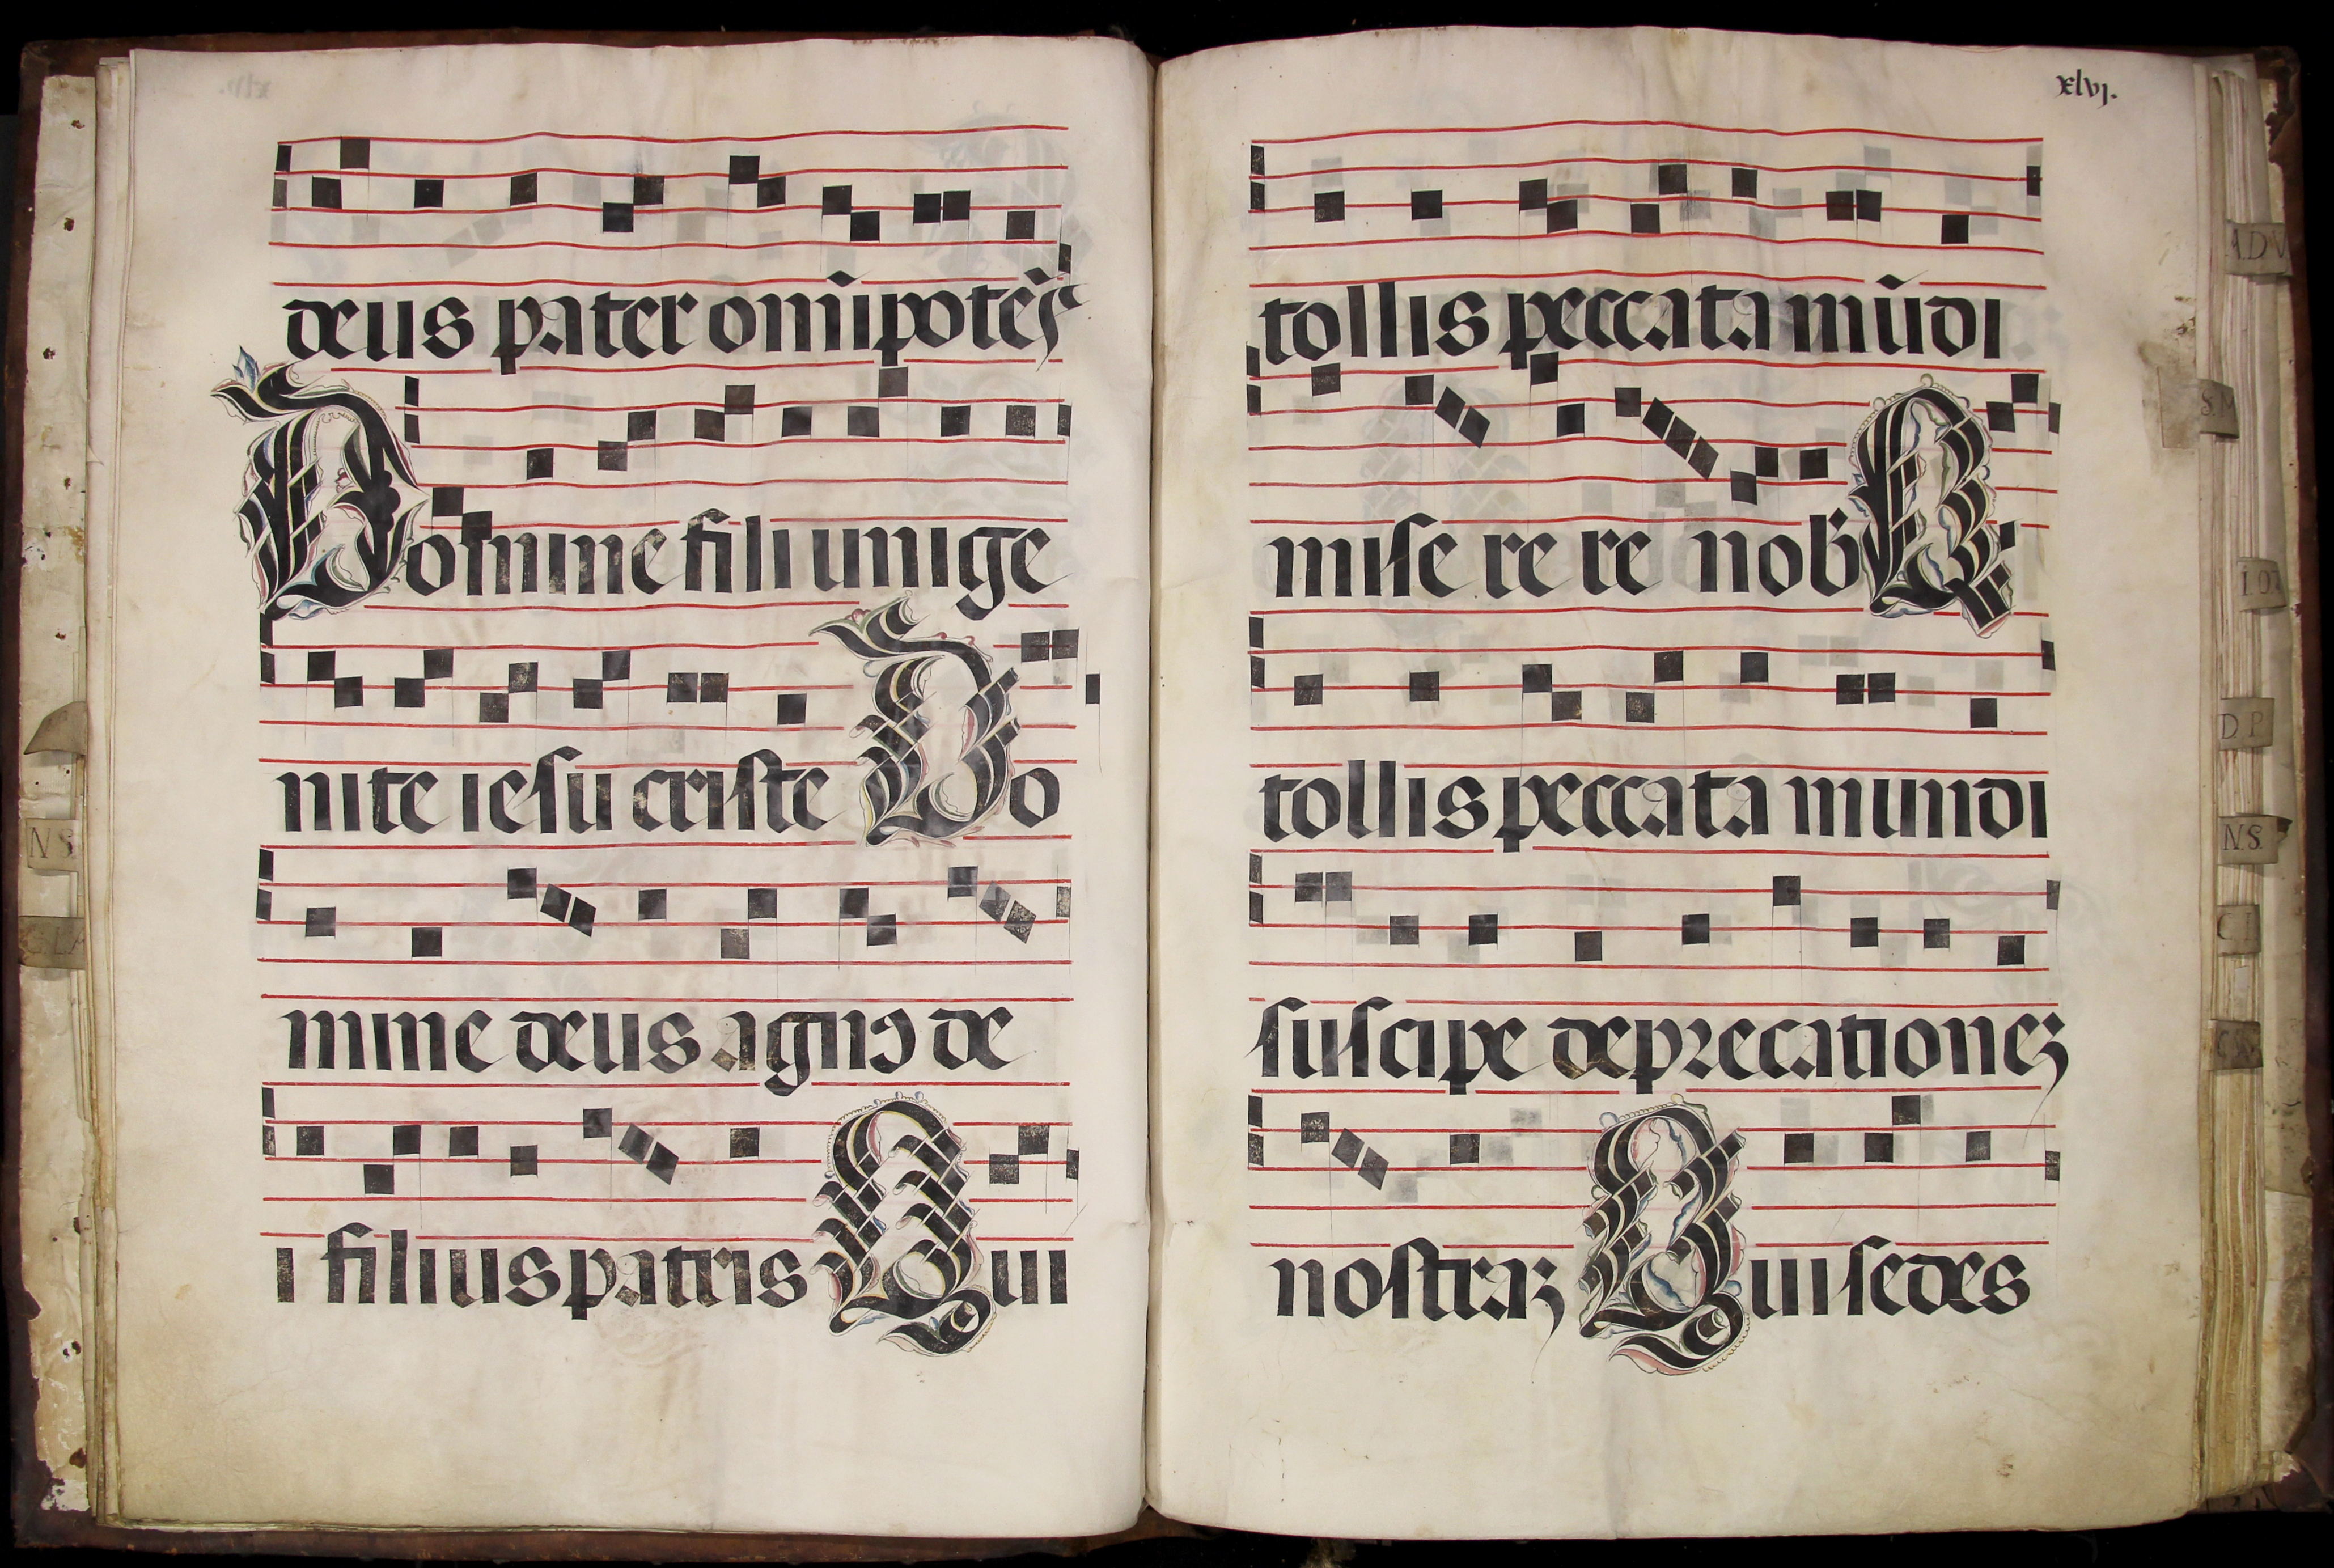 deus pater omĩpotẽs
Domine fili unige
nite iesu criste Do
mine deus agnꝰ de
i filius patris Qui
xlvj.
tollis peccata mũdi
mise re re nob Q
tollis peccata mundi
suscipe deprecationeꝫ
nostraꝫ Qui sedes
N S
ADV
S.M
D P
N.S.